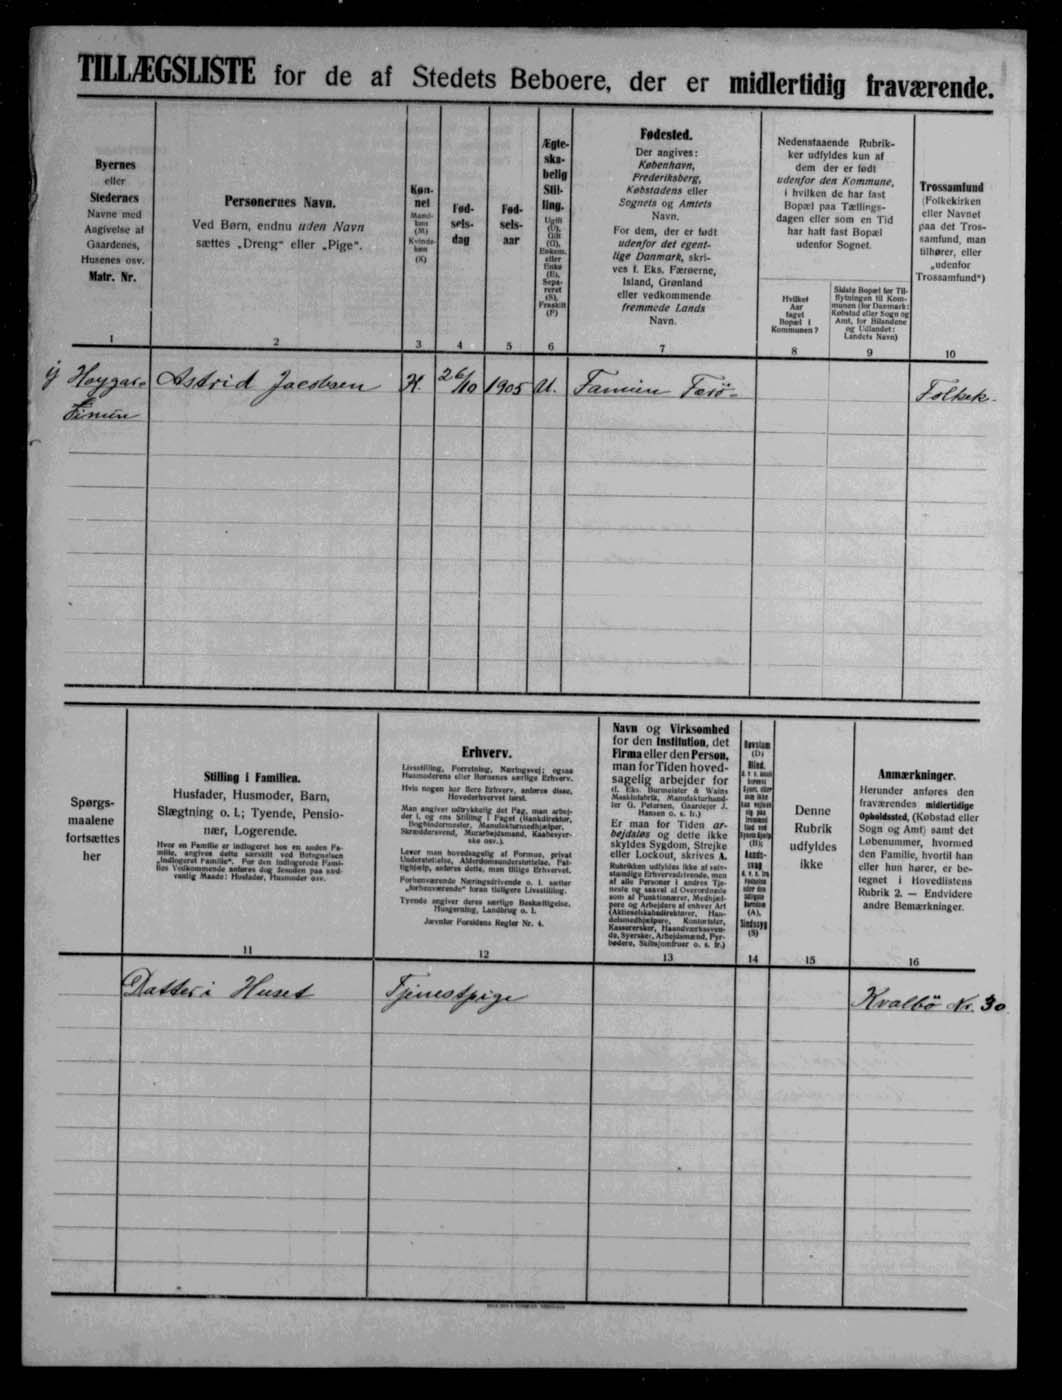 TILLÆGSLISTE for de af Stedets Beboere, der er midlertidig fraværende.
Byernes
eller
Stedernes
Navne med
Angivelse af
Gaardenes,
Husenes osv.
Matr. Nr.
1
Personernes Navn.
Ved Børn, endnu uden Navn
sættes „Dreng“ eller „Pige“.
2
Køn-
net
Mand-
køn
(M)
Kvinde-
køn
(K)
3
Fød-
sels-
dag
4
Fød-
sels-
aar
5
Ægte-
ska-
belig
Stil-
ling.
Ugift
(U),
Gift
(G),
Enkem.
eller
Enke
(E),
Sepa-
reret
(S),
Fraskilt
(F)
6
Fødested.
Der angives:
København,
Frederiksberg,
Købstadens eller
Sognets og Amtets
Navn.
For dem, der er født
udenfor det egent-
lige Danmark, skri-
ves f. Eks. Færøerne,
Island, Grønland
eller vedkommende
fremmede Lands
Navn.
7
Nedenstaaende Rubrik-
ker udfyldes kun af
dem der er født
udenfor den Kommune,
i hvilken de har fast
Bopæl paa Tællings-
dagen eller som en Tid
har haft fast Bopæl
udenfor Sognet.
Hvilket
Aar
taget
Bopæl i
Kommunen?
8
Sidste Bopæl før Til-
flytningen til Kom-
munen (for Danmark:
Købstad eller Sogn og
Amt, for Bilandene
og Udlandet:
Landets Navn)
9
Trossamfund
(Folkekirken
eller Navnet
paa det Tros-
samfund, man
tilhører, eller
„udenfor
Trossamfund“)
10
Høygar= Astrid Jacobsen K. 26/10 1905 U. Famiun Færö= Folkek.
Fimun
Spørgs-
maalene
fortsættes
her
Stilling i Familien.
Husfader, Husmoder, Barn,
Slægtning o. l.; Tyende, Pensio-
nær, Logerende.
Hvor en Familie er indlogeret hos en anden Fa-
milie, angives dette særskilt ved Betegnelsen
„Indlogeret Familie“. For den indlogerede Fami-
lies Vedkommende anføres dog desuden paa sæd-
vanlig Maade: Husfader, Husmoder osv.
11
Erhverv.
Livsstilling, Forretning, Næringsvej; ogsaa
Husmoderens eller Børnenes særlige Erhverv.
Hvis nogen har flere Erhverv, anføres disse,
Hovederhvervet først.
Man angiver udtrykkelig det Fag, man arbej-
der i, og ens Stilling i Faget (Bankdirektør,
Bogbindermester, Manufakturmedhjælper,
Skræddersvend, Murarbejdsmand, Kaabesyer-
ske osv.).
Lever man hovedsagelig af Formue, privat
Understøttelse, Alderdomsunderstøttelse, Fat-
tighjælp, anføres dette, men tillige Erhvervet.
Forhenværende Næringsdrivende o. l. sætter
„forhenværende“ foran tidligere Livsstilling.
Tyende angiver deres særlige Beskæftigelse,
Husgerning, Landbrug o. l.
Jævnfør Forsidens Regler Nr. 4.
12
Navn og Virksomhed
for den Institution, det
Firma eller den Person,
man for Tiden hoved-
sagelig arbejder for
(f. Eks. Burmeister & Wains
Maskinfabrik, Manufakturhand-
ler G. Petersen, Gaardejer J.
Hansen o. s. fr.)
Er man for Tiden ar-
bejdsløs og dette ikke
skyldes Sygdom, Strejke
eller Lockout, skrives A.
Rubrikken udfyldes ikke af selv-
stændige Erhvervsdrivende, men
af alle Personer i andres Tje-
neste og saavel af Overordnede
som af Funktionærer, Medhjæl-
pere og Arbejdere af enhver Art
(Aktieselskabsdirektører, Han-
delsmedhjælpere, Kontorister,
Kassererske r, Haandværkssven-
de, Syersker, Arbejdsmænd, Fyr-
bødere, Skibsjomfruer o. s. fr.)
13
Døvstum
(D)
Blind
(B);
Aands-
svag
(A),
Sindssyg
(S)
14
Denne
Rubrik
udfyldes
ikke
15
Anmærkninger.
Herunder anføres den
fraværendes midlertidige
Opholdssted, (Købstad eller
Sogn og Amt) samt det
Løbenummer, hvormed
den Familie, hvortil han
eller hun hører, er be-
tegnet i Hovedlistens
Rubrik 2. — Endvidere
andre Bemærkninger.
16
Datter i Huset Tjenestpige Kvalbö Nr. 30